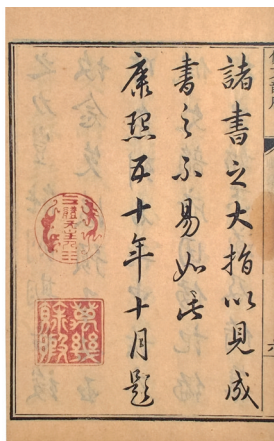 諸書之大指以見成
書之不易如此
康熙五十年十月題
萬幾餘暇